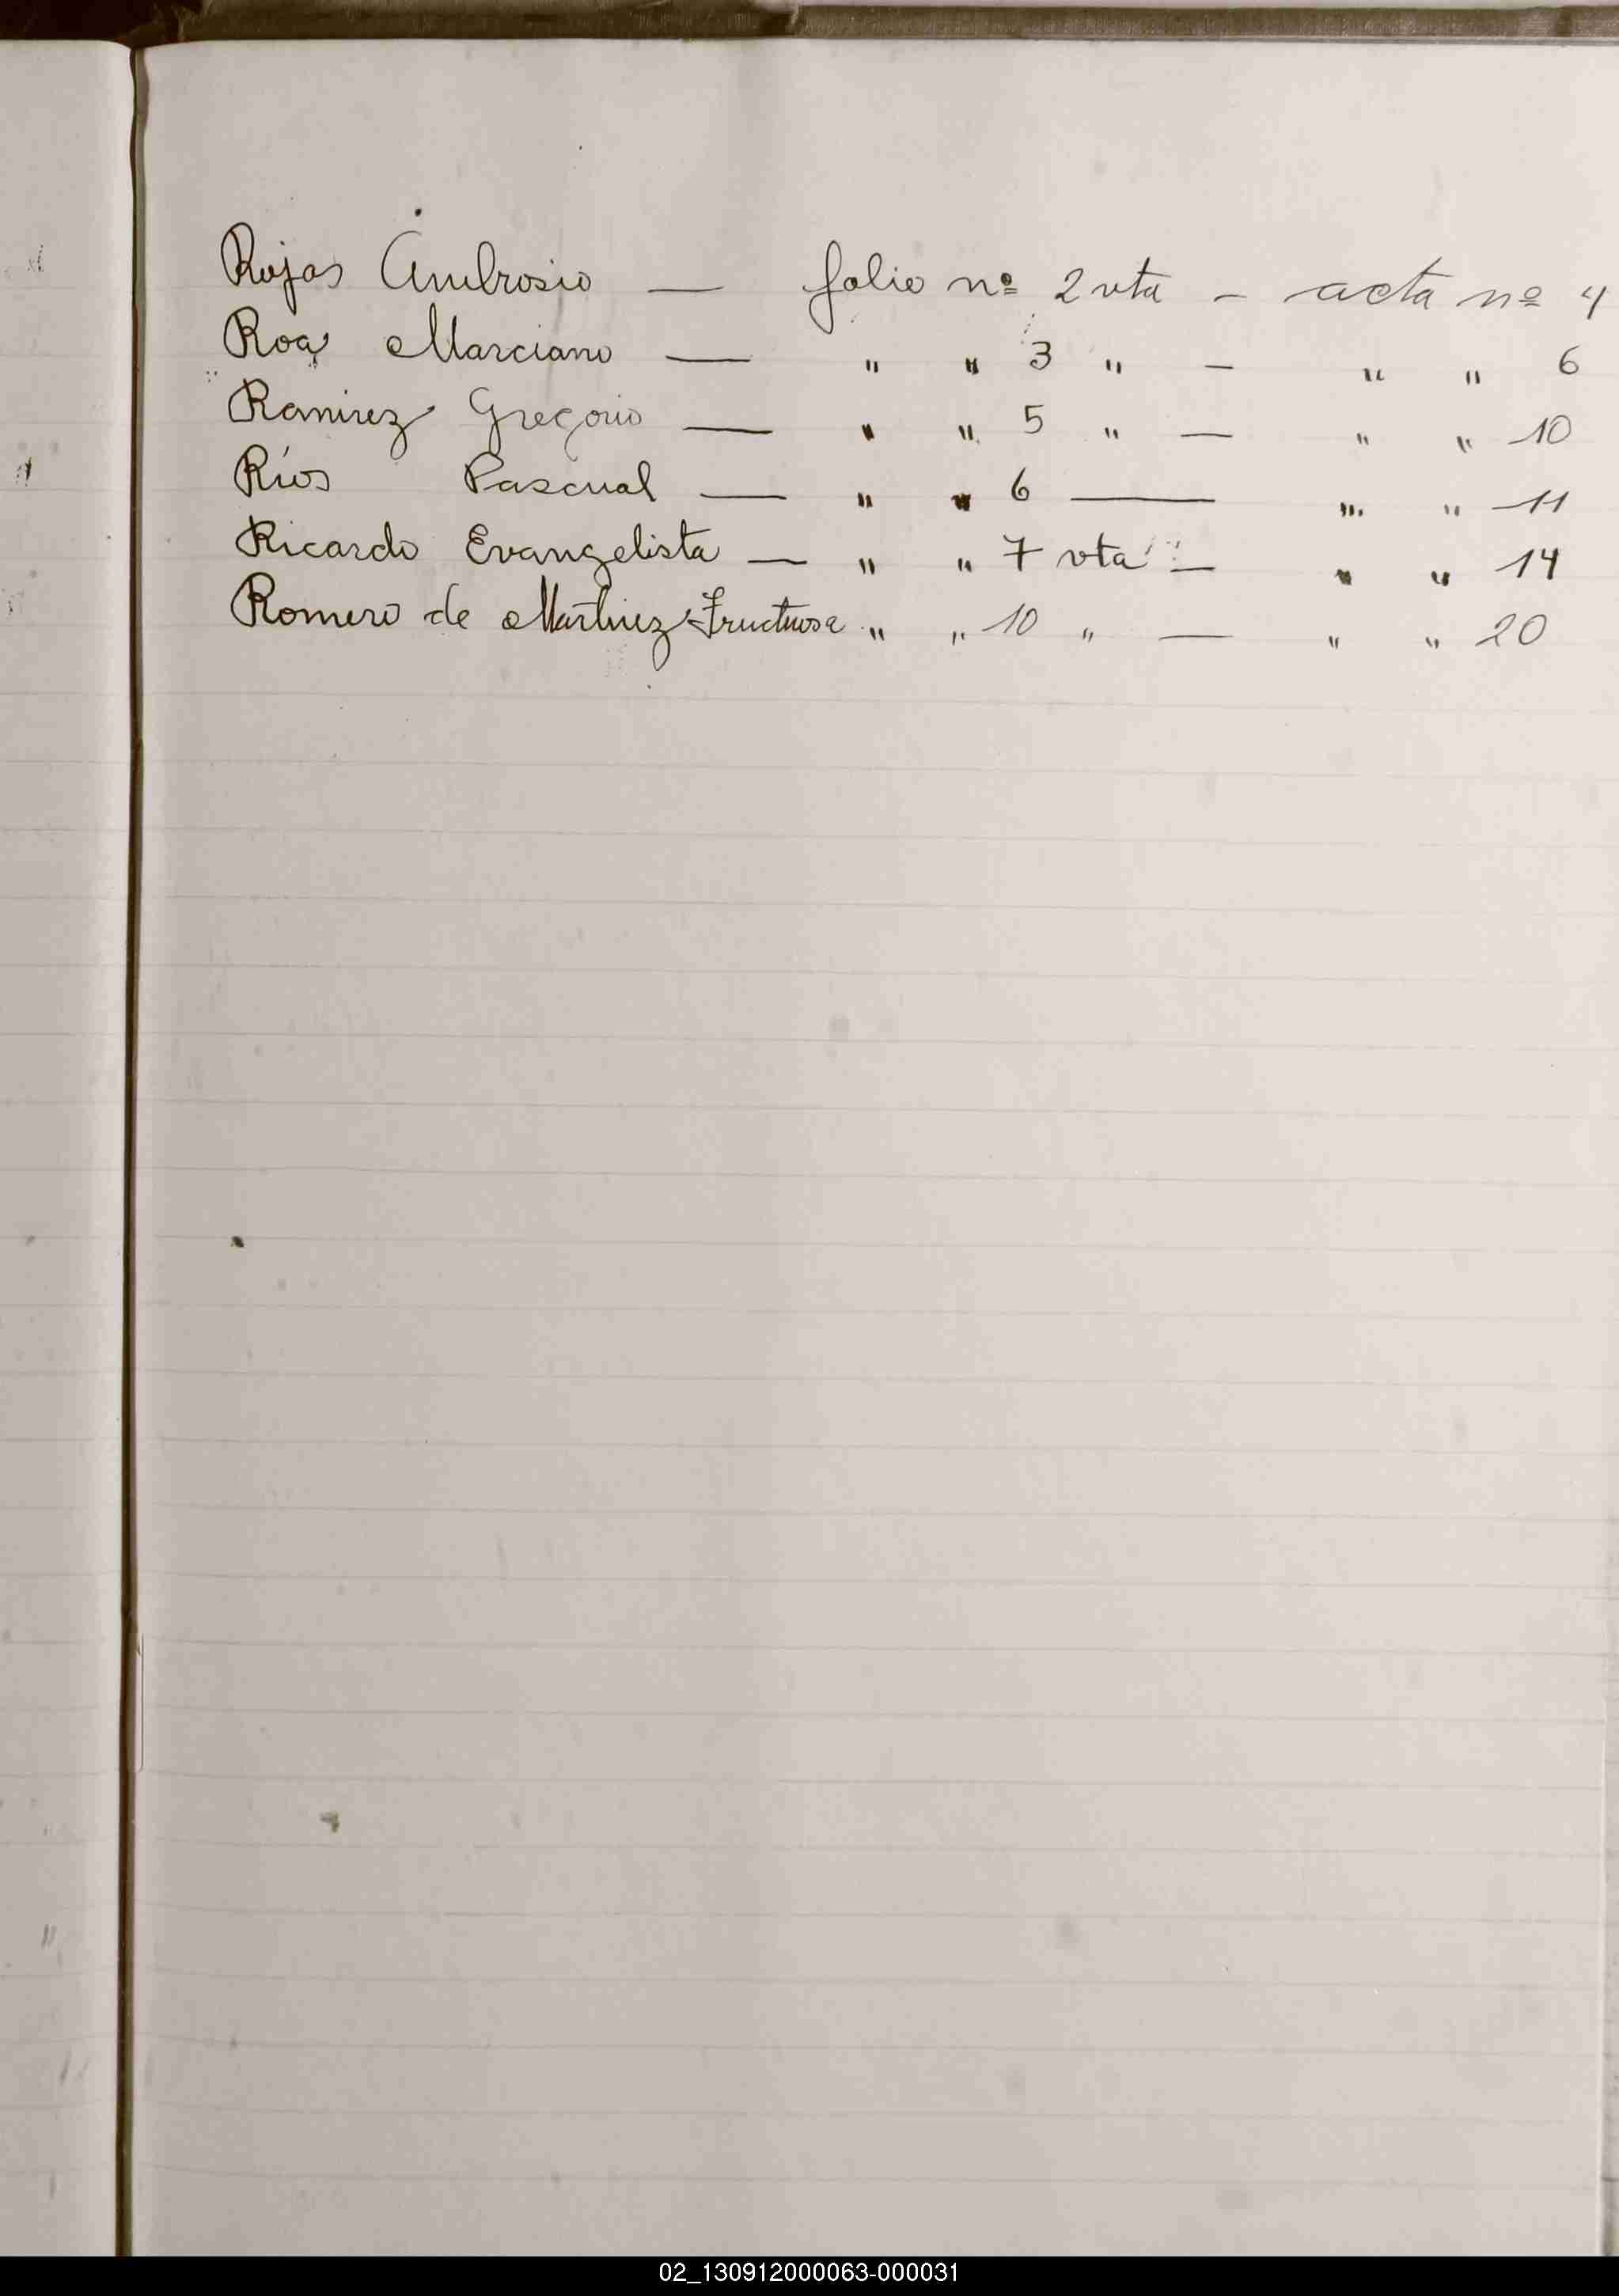 Rojas Ambrosio — folio nº 2 vta — acta nº 4
Roa Marciano — " " 3 " — " " 6
Ramirez Gregorio — " " 5 " — " " 10
Ríos Pascual — " " 6 — " " 11
Ricardo Evangelista — " " 7 vta — " " 14
Romero de Martinez Fructuosa " " 10 " — " " 20
02_130912000063-000031